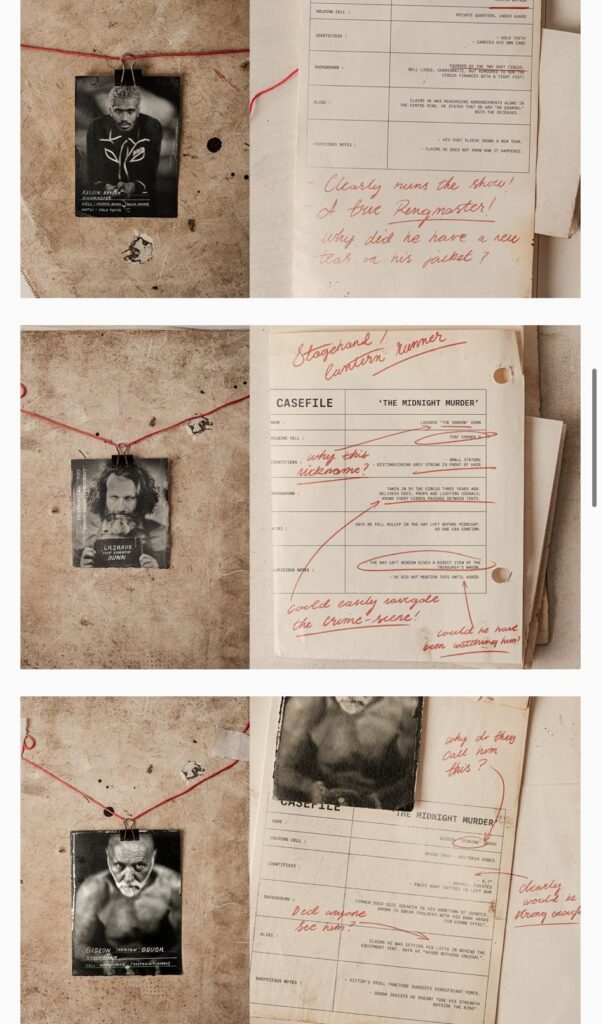 KELVIN
RINGMASTER
NOTES : GOLD TEETH
HOLDING CELL :
PRIVATE QUARTERS, UNDER GUARD
IDENTIFIERS :
- GOLD TEETH
- CARRIES HIS OWN CANE
BACKGROUND :
FOUNDER OF THE TWO SHOT CIRCUS.
WELL LIKED, CHARISMATIC, BUT RUMOURED TO RUN THE
CIRCUS FINANCES WITH A TIGHT FIST!
ALIBI :
CLAIMS HE WAS REHEARSING ANNOUNCEMENTS ALONE IN
THE CENTRE RING. HE STATED THAT HE HAS "NO QUARREL"
WITH THE DECEASED...
SUSPICIOUS NOTES :
- HIS COAT SLEEVE SHOWS A NEW TEAR.
- CLAIMS HE DOES NOT KNOW HOW IT HAPPENED.
- Clearly runs the show!
- A true Ringmaster!
Why did he have a new
tear on his jacket?
LAZARUS
"THE SHADOW"
DUNN
Stagehand /
Lantern runner
CASEFILE
'THE MIDNIGHT MURDER'
NAME :
LAZARUS "THE SHADOW" DUNN
HOLDING CELL :
TENT CORNER
why this
nickname?
IDENTIFIERS :
- SMALL STATURE
- DISTINGUISHING GREY STREAK IN FRONT OF HAIR
BACKGROUND :
TAKEN IN BY THE CIRCUS THREE YEARS AGO.
DELIVERS CUES, PROPS AND LIGHTING SIGNALS;
KNOWS EVERY HIDDEN PASSAGE BETWEEN TENTS.
ALIBI :
SAYS HE FELL ASLEEP IN THE HAY LOFT BEFORE MIDNIGHT.
NO ONE CAN CONFIRM.
SUSPICIOUS NOTES :
THE HAY LOFT WINDOW GIVES A DIRECT VIEW OF THE
TREASURER'S WAGON.
- HE DID NOT MENTION THIS UNTIL ASKED.
could easily navigate
the crime-scene!
could he have
been watching him!
GIDEON IRONJAW GOUGH
STRONGMAN
why do they
call him
this?
CASEFILE
'THE MIDNIGHT MURDER'
NAME :
GIDEON "IRONJAW" GOUGH
HOLDING CELL :
IDENTIFIERS :
- 6.7"
- FADED NAVY TATTOOS ON LEFT ARM
clearly
would be
strong enough
BACKGROUND :
FORMER DOCK SIDE BOUNCER IN HIS HOMETOWN OF
KNOWN TO BREAK PADLOCKS WITH HIS BARE HANDS
FOR CROWD EFFECT.
Did anyone
see him?
ALIBI :
CLAIMS HE WAS GETTING HIS LIFTS IN BEHIND THE
EQUIPMENT TENT. SAYS HE "HEARD NOTHING UNUSUAL".
SUSPICIOUS NOTES :
- VICTIM'S SKULL FRACTURE SUGGESTS SIGNIFICANT FORCE.
- GOUGH INSISTS HE DOESNT "USE HIS STRENGTH
OUTSIDE THE RING"